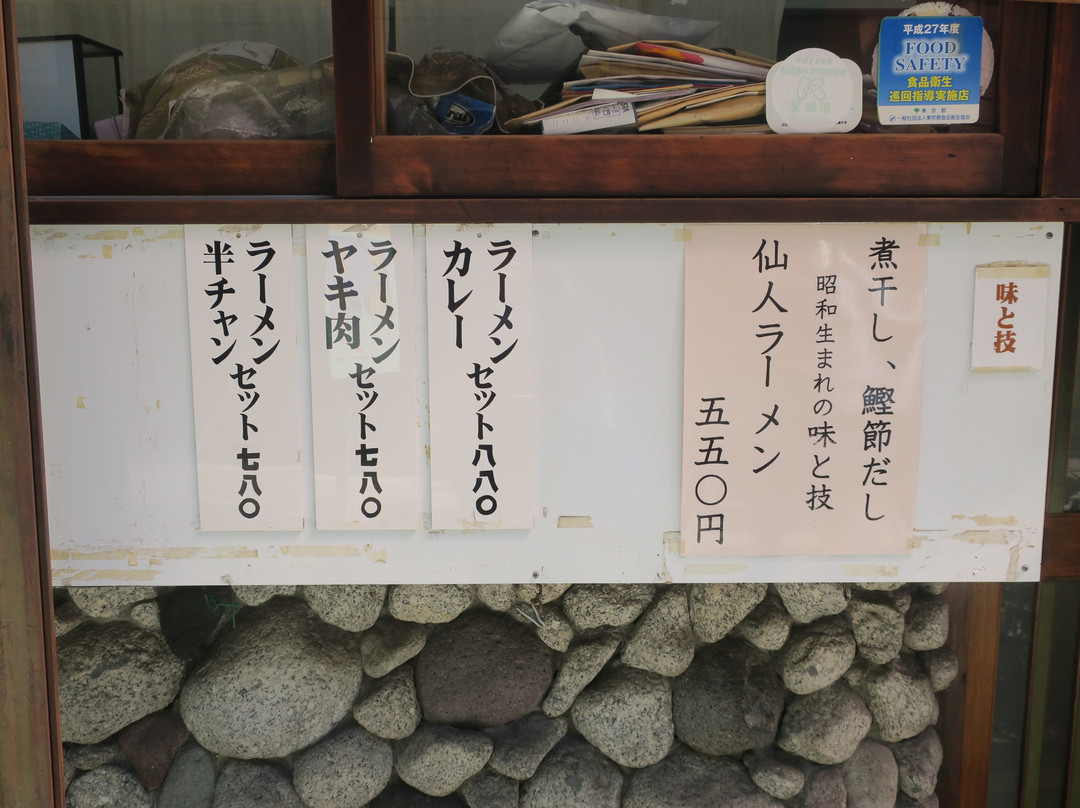 平成27年度
FOOD
SAFETY
食品衛生
巡回指導実施店
東京都
一般社団法人東京都食品衛生協会
味と技
煮干し、鰹節だし
昭和生まれの味と技
仙人ラーメン
五五〇円
ラーメン
カレー
セット八八〇
ラーメン
ヤキ肉
セット七八〇
ラーメン
半チャン
セット七八〇